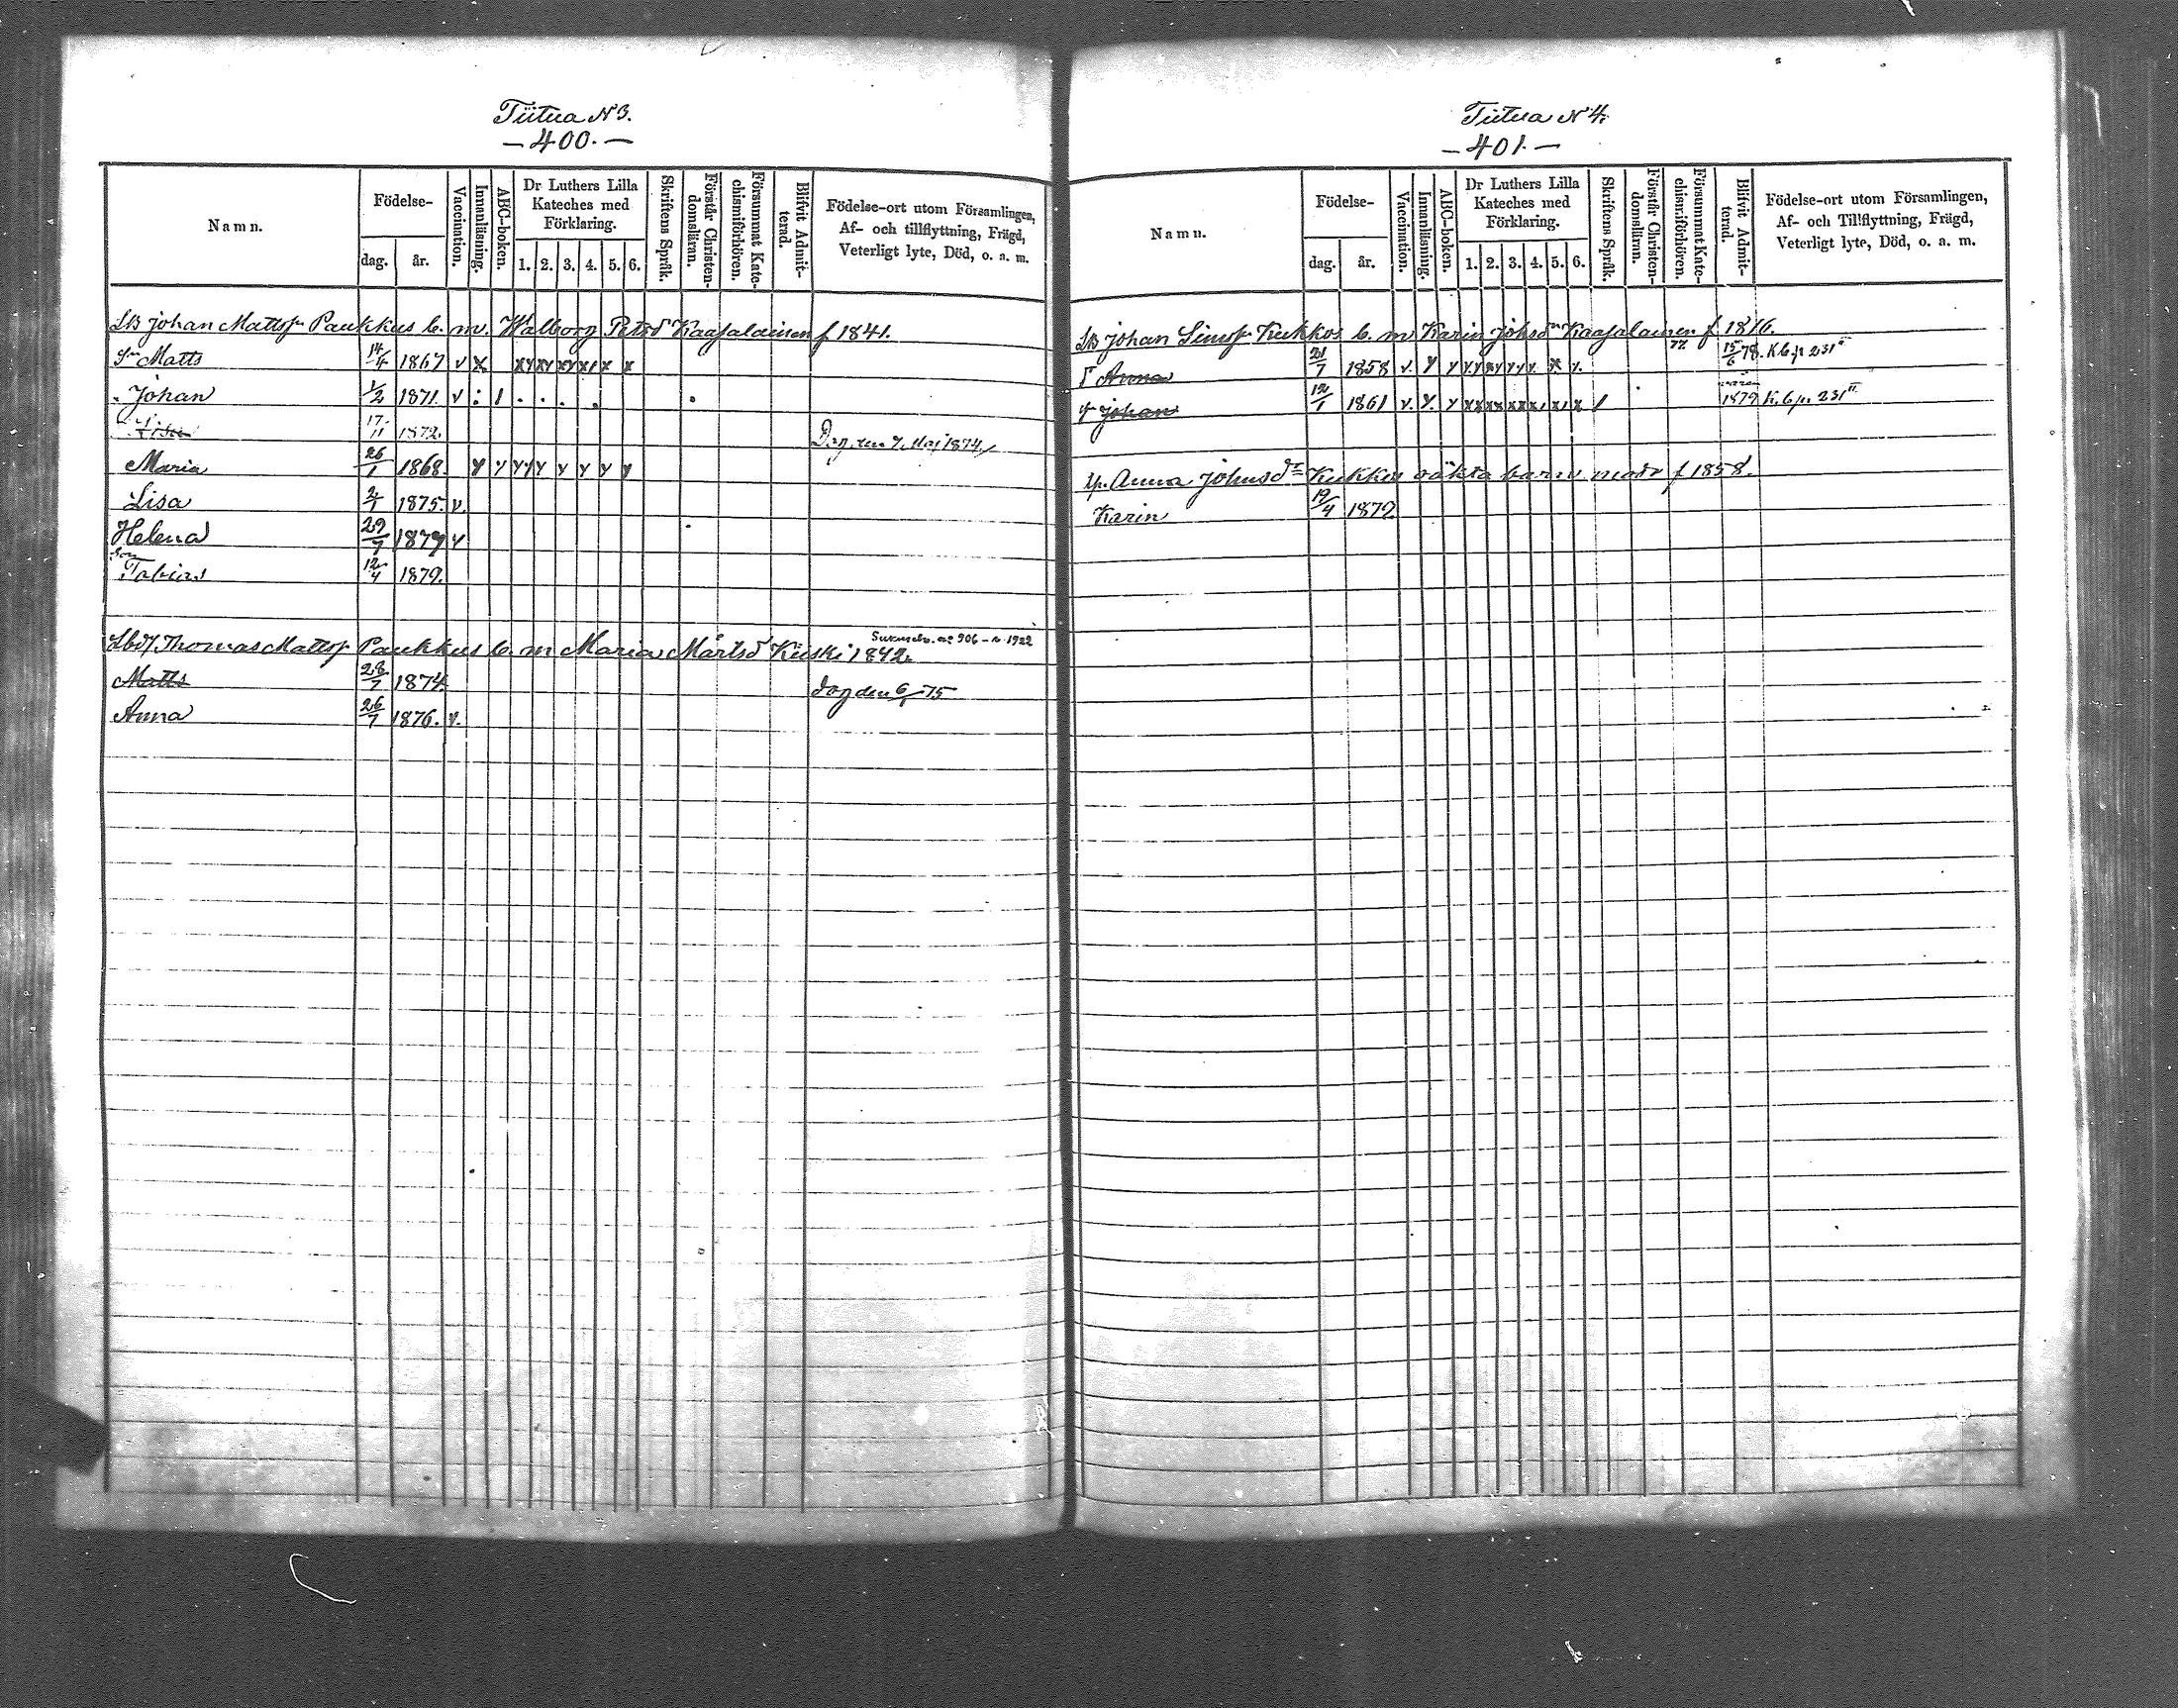 Tiitua N 3.
— 400. —
Namn.
Födelse-
dag.
år.
Vaccination.
Innanläsning.
ABC-boken.
Dr Luthers Lilla
Kateches med
Förklaring.
1. 2. 3. 4. 5. 6.
Skriftens Språk.
Förstår Christen-
domsläran.
Försummat Kate-
chismiförhören.
Blifvit Admit-
terad.
Födelse-ort utom Församlingen,
Af- och tillflyttning, Frägd,
Veterligt lyte, Död, o. a. m.
Johan Matts Paukkus b. m. Walborg Petrsd Kaasalainen f 1841.
Matts 1867 v x
Johan 1/2 1871. v
Lisa 17/11 1872. Dog den 7 Maj 1874
Maria 26/1 1868.
Lisa 2/1 1875. v.
Helena 29/7 1877 v
Tobias 12/4 1879.
Thomas Matts Paukkus b. m Maria Mårtsd Kiiski 1842.
906 1922
Matts 28/7 1874. dog den 75
Anna 26/7 1876. v.
Tiitua N 4.
— 401. —
Namn.
Födelse-
dag.
år.
Vaccination.
Innanläsning.
ABC-boken.
Dr Luthers Lilla
Kateches med
Förklaring.
1. 2. 3. 4. 5. 6.
Skriftens Språk.
Förstår Christen-
domsläran.
Försummat Kate-
chismiförhören.
Blifvit Admit-
terad.
Födelse-ort utom Församlingen,
Af- och Tillflyttning, Frägd,
Veterligt lyte, Död, o. a. m.
Johan Simss Kukkos b. m Karin Johsdr Kaasalainen f 1816.
Anna 21/7 1858 v. 77 15/6 78. K.b. p 231 II
Johan 12/1 1861 v. 1879 K.b p. 231 II
Anna Johnsdr Kukkos oäkta barn moder f 1858.
Karin 19/4 1879